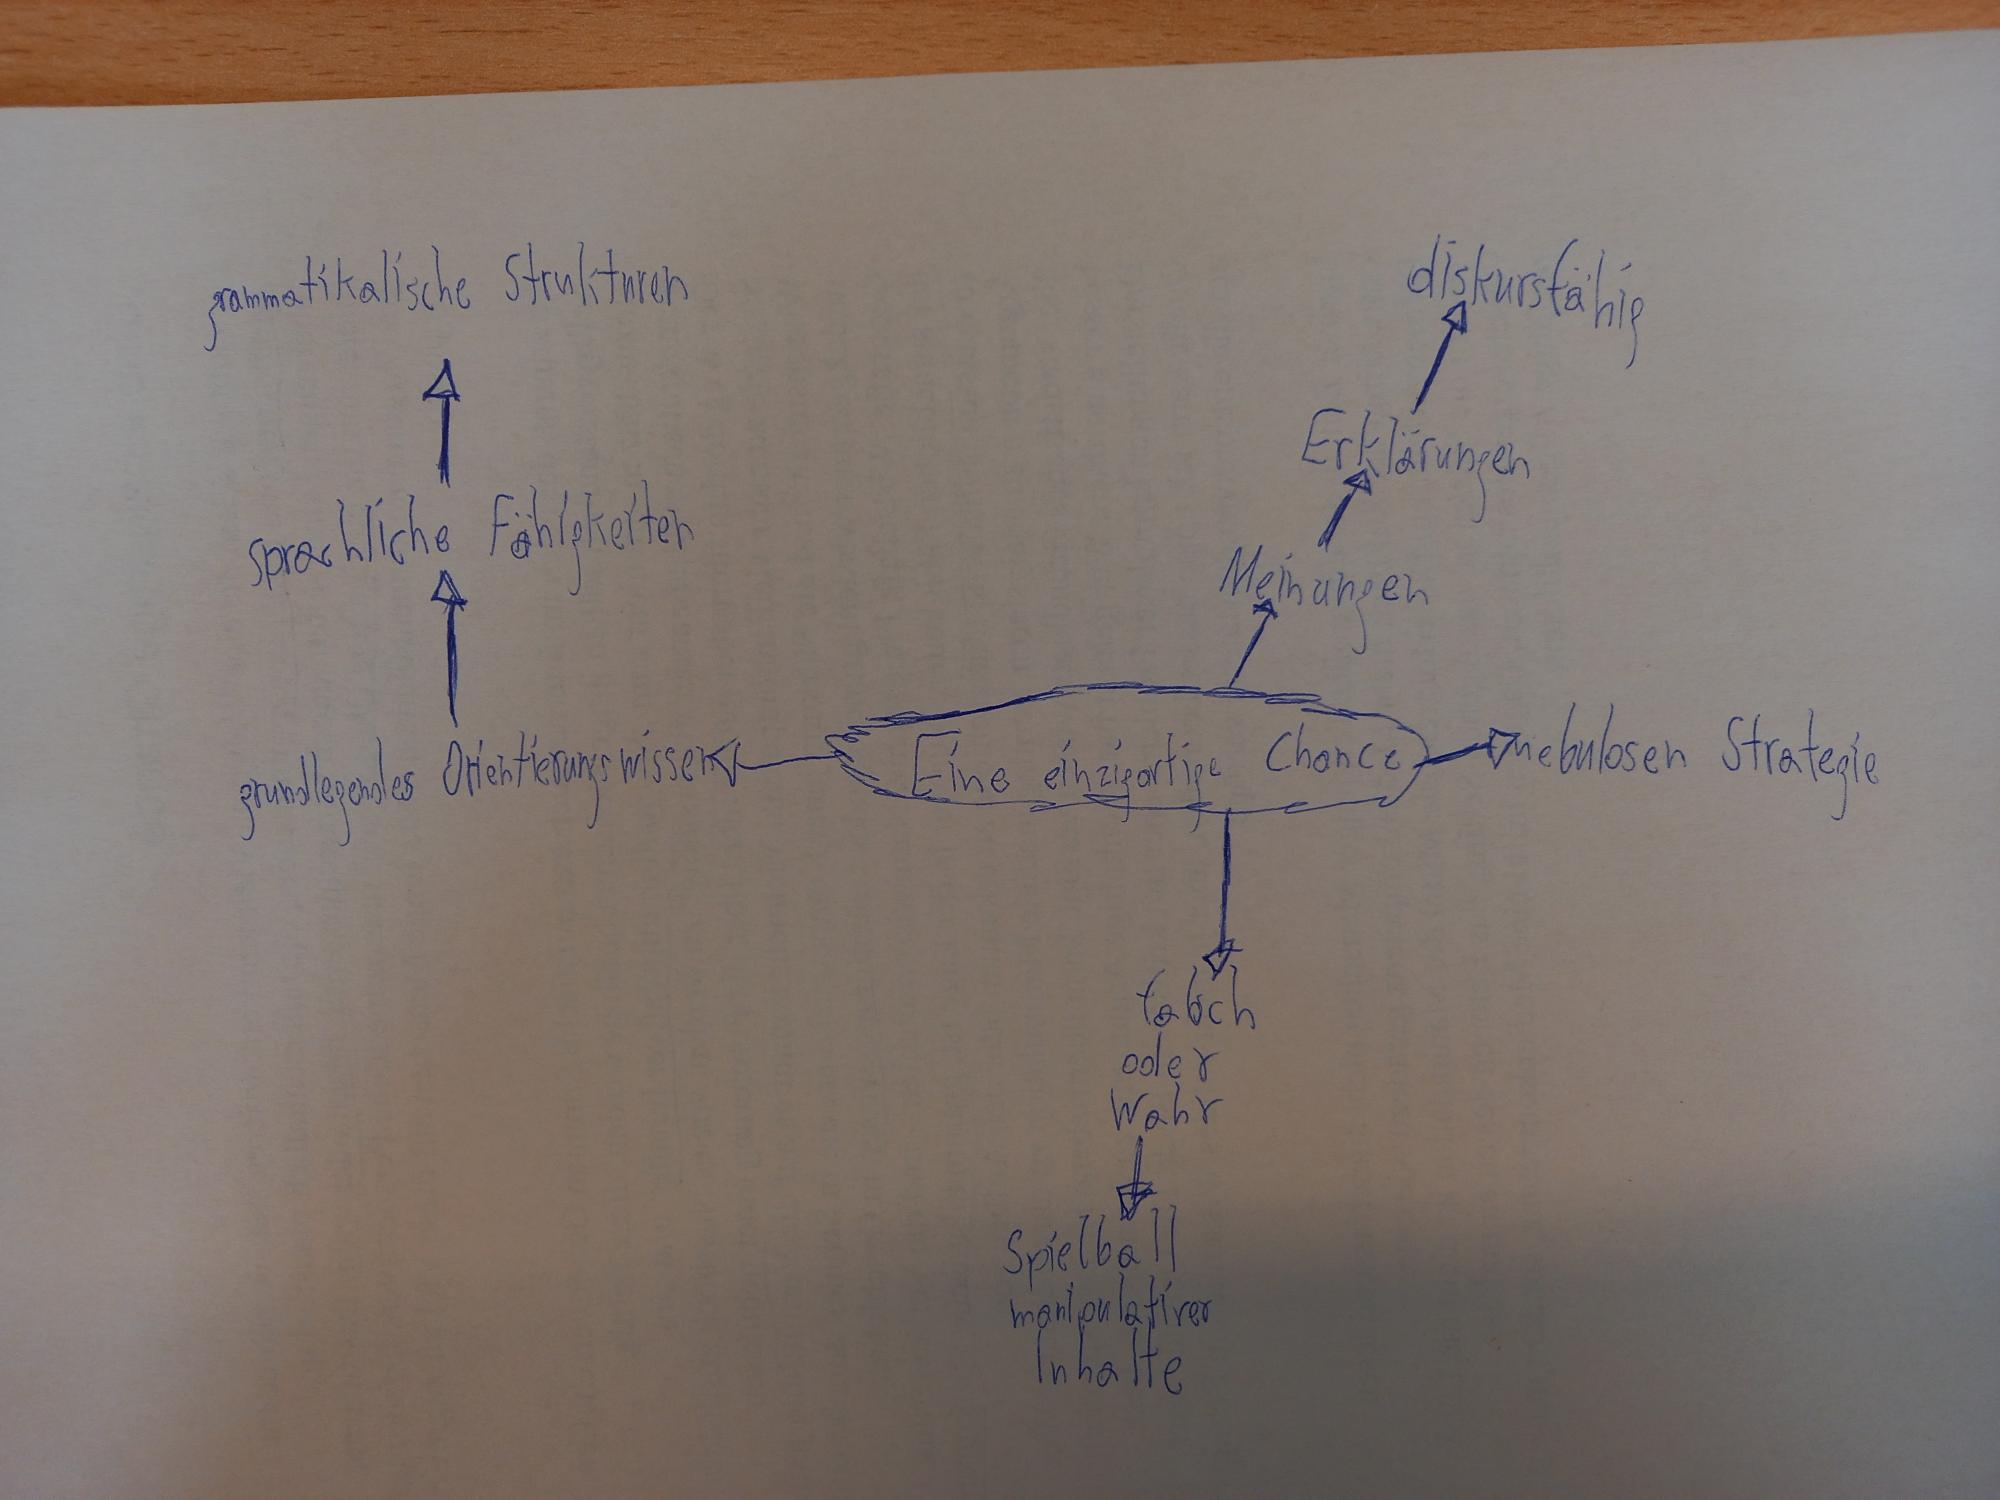 diskursfähig
grammatikalische Strukturen
Erklärungen
sprachliche Fähigkeiten
Meinungen
grundlegendes Orientierungswissen
Eine einzigartige Chance
nebulosen Strategie
oder
Wahr
Spielball
manipulativer
Inhalte